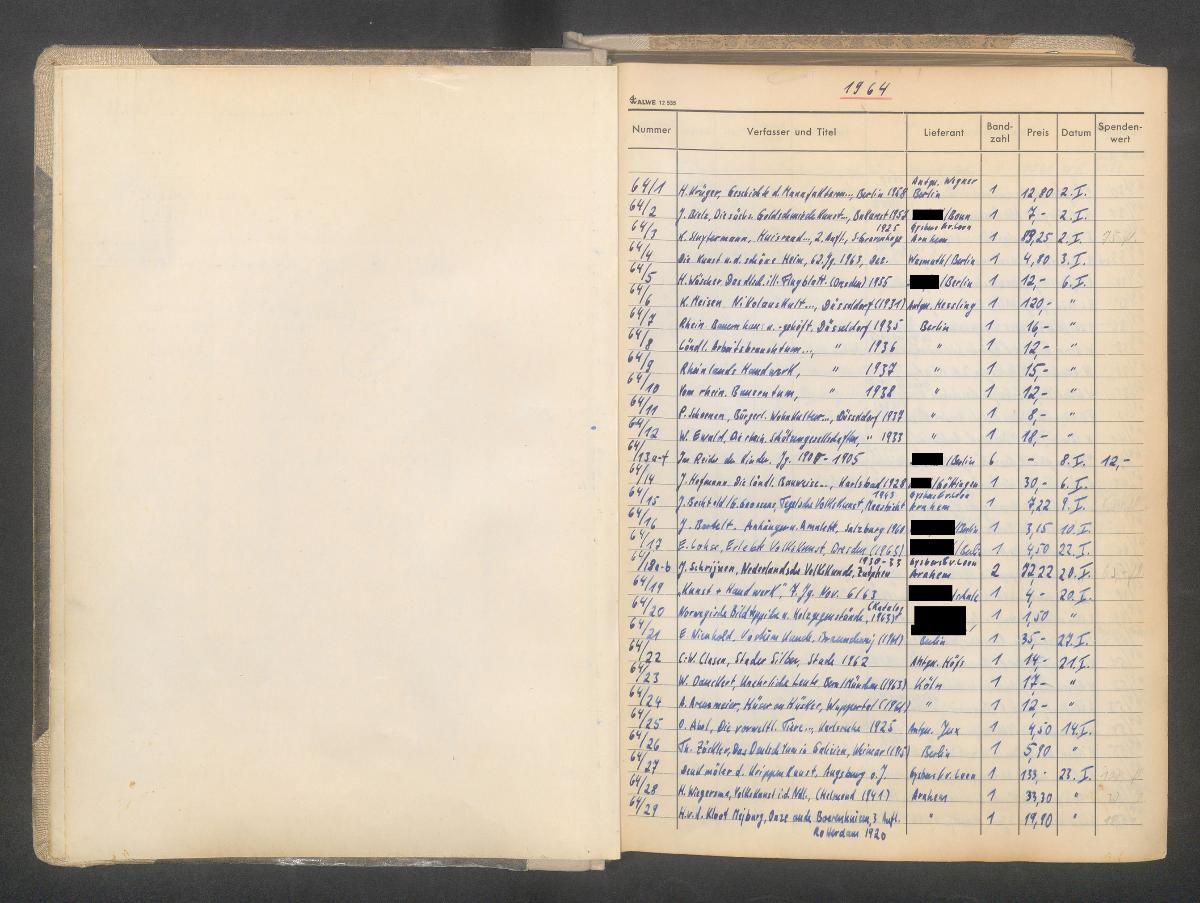 1964
ALWE 12 535
Nummer Verfasser und Titel Lieferant Band-zahl Preis Datum Spenden-wert
64/1 H. Krüger, Geschichte d. Manufakturen..., Berlin 1968 Antqu. Wegner Berlin 1 12,80 2.I.
64/2 J. Bielz, Die sächs. Goldschmiedekunst..., Bukarest 1957 /Bonn 1 7,- 2.I.
64/3 K. Sluyterman, Huisraad..., 2. Aufl., S-Gravenhage 1925 Gysbers & v. Loon Arnhem 1 89,25 2.I.
64/4 Die Kunst u. d. schöne Heim, 62. Jg. 1963, Dez. Wasmuth/Berlin 1 4,80 3.I.
64/5 H. Wäscher, Das dtsch. ill. Flugblatt. (Dresden) 1955 /Berlin 1 12,- 6.I.
64/6 K. Meisen Nikolauskult..., Düsseldorf (1931) Antqu. Hessling 1 120,- "
64/7 Rhein. Bauernhaus u. -gehöft. Düsseldorf 1935 Berlin 1 16,- "
64/8 Ländl. Arbeitsbrauchtum..., " 1936 " 1 12,- "
64/9 Rheinlands Handwerk, " 1937 " 1 15,- "
64/10 Vom rhein. Bauerntum, " 1938 " 1 12,- "
64/11 P. Schoenen, Bürgerl. Wohnkultur..., Düsseldorf 1937 " 1 8,- "
64/12 W. Ewald, Die rhein. Schützengesellschaften, " 1933 " 1 18,- "
64/13a-f Im Reiche der Kinder. Jg. 1900-1905 /Berlin 6 - 8.I. 12,-
64/14 J. Hofmann. Die ländl. Bauweise..., Karlsbad 1928 /Göttingen 1 30,- 6.I.
64/15 J. Bechtold/G. Goossens, Tegelsche Volkskunst, Maastricht 1943 Gysbers & v. Loon Arnhem 1 7,22 9.I.
64/16 J. Bartelt. Anhänger u. Amulett, Salzburg 1960 /Berlin 1 3,15 10.I.
64/17 E. Lohse, Erlebte Volkskunst, Dresden (1963) 1 4,50 22.I.
64/18a-b J. Schrijnen, Nederlandsche Volkskunde, Zutphen 1930-33 Gysbers & v. Loon Arnhem 2 72,22 20.I.
64/19 „Kunst + Handwerk", 7. Jg. Nov. 6/63 1 4,- 20.I.
64/20 Norwegische Bildteppiche u. Holzgegenstände, (Katalog 1963) 1 1,50 "
64/21 E. Nienholdt. Braunschweig (1961) / Berlin 1 35,- 27.I.
64/22 C.-W. Clasen, Stader Silber, Stade 1962 Antqu. 1 14,- 21.I.
64/23 W. Danckert, Unehrliche Leute Bern/München (1963) Köln 1 17,- "
64/24 Wuppertal (1961) " 1 12,- "
64/25 O. Abel, Die vorweltl. Tiere..., Karlsruhe 1925 Antqu. Jux 1 4,50 14.I.
64/26 Th. Zöckler, Das Deutschtum in Galizien, Weimar (1915) Berlin 1 5,90 "
64/27 Denkmäler d. Krippenkunst, Augsburg o. J. Gysbers & v. Loon 1 133,- 23.I.
64/28 H. Wiegersma, Volkskunst i. d. Ndl., (Helmond 1941) Arnhem 1 33,30 "
64/29 H. v. d. Kloot Meijburg, Onze oude Boerenhuizen, 3. Aufl. " 1 19,90 "
Rotterdam 1920